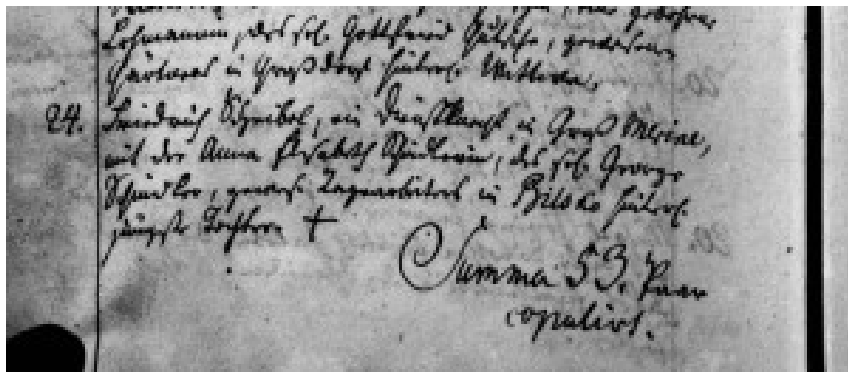 Lehmannin, des sel. Gottfried Gutsche, gewesenen
Gärtners in Großdorf hinterl. Wittwe.
24. Friedrich Scheibel, ein Dienstknecht in Groß
mit der Anna Elisabeth Schindlerin, des sel. George
Schindler, gewes. Tagearbeiters in hinterl.
jüngste Tochter. †
Summa 53. Paar
copulirt.